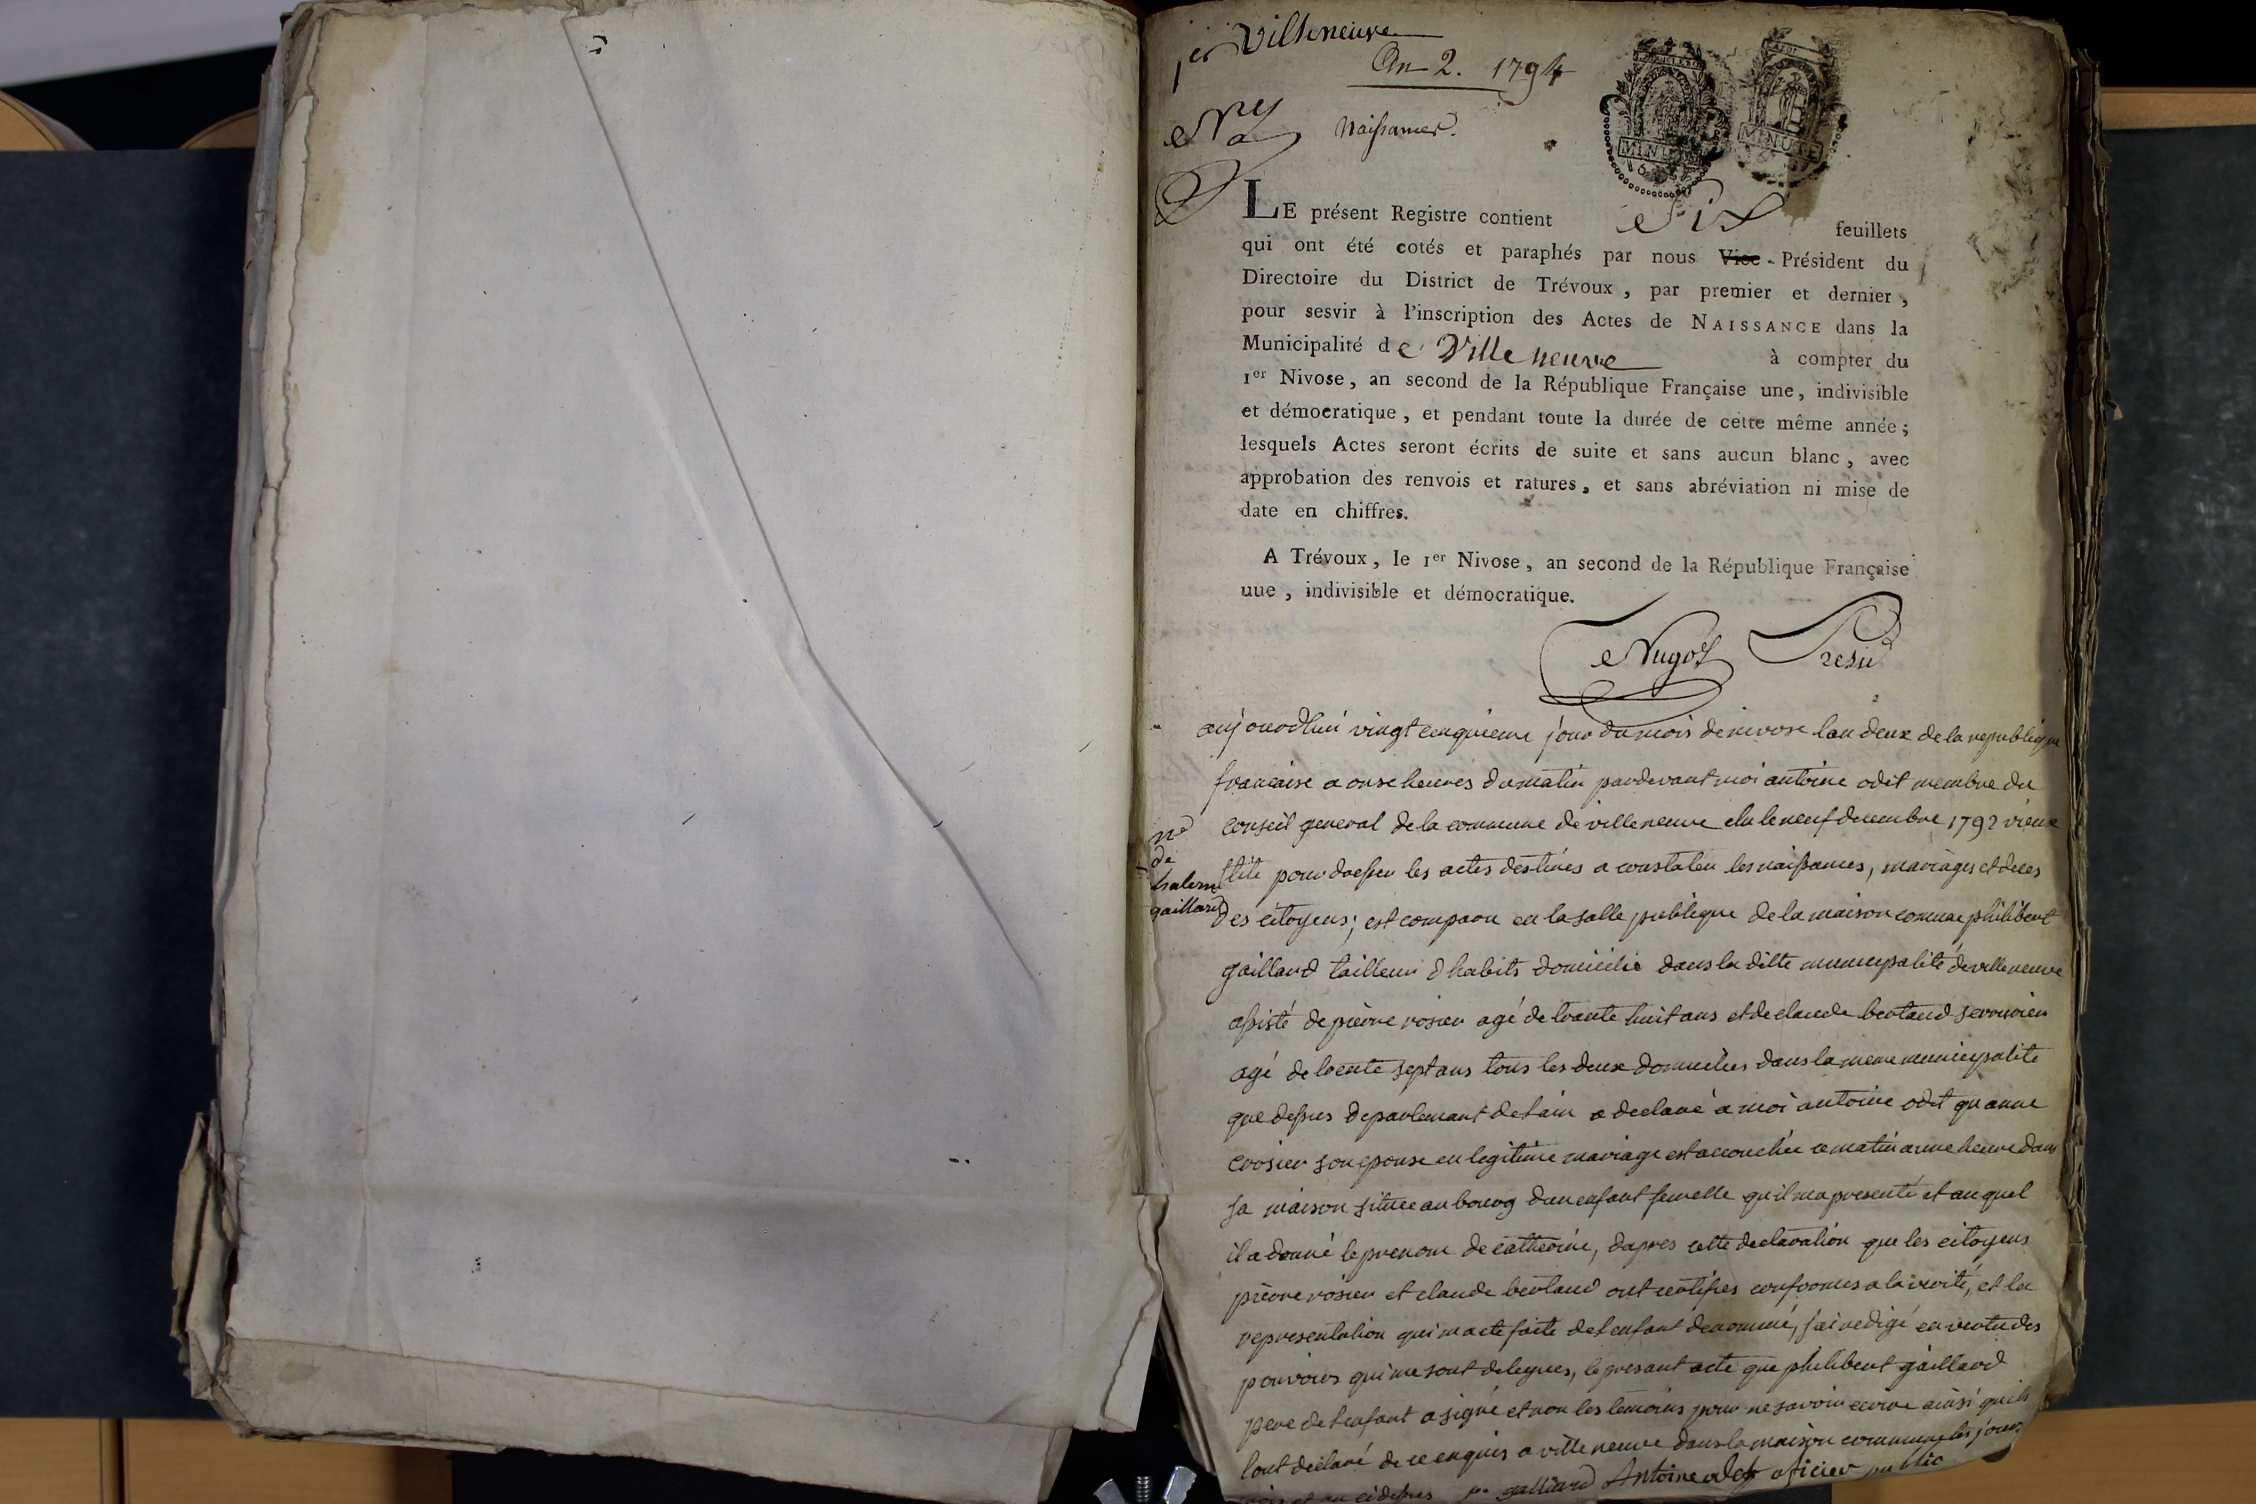 1er Villeneuve
An 2. 1794
Naissances.
MINUTE
MINUTE
LE présent Registre contient Six feuillets
qui ont été cotés et paraphés par nous Vice-Président du
Directoire du District de Trévoux, par premier et dernier,
pour sesvir à l'inscription des Actes de NAISSANCE dans la
Municipalité de Ville neuve à compter du
1er Nivose, an second de la République Française une, indivisible
et démocratique, et pendant toute la durée de cette même année;
lesquels Actes seront écrits de suite et sans aucun blanc, avec
approbation des renvois et ratures, et sans abréviation ni mise de
date en chiffres.
A Trévoux, le 1er Nivose, an second de la République Française
uue, indivisible et démocratique.
aujourdhui vingt cinquieme jour du mois de nivose lan deux de la republique
francaise a onse heures du matin pardevant moi antoine odet membre du
conseil general de la commune de villeneuve elu le neuf decembre 1792 vieux
stile pour dresser les actes destinés a constater les naissances, mariages et deces
des citoyens; est comparu en la salle publique de la maison comune philibert
gaillard tailleur dhabits domicilié dans la ditte municipalité de villeneuve
assisté de pierre rosier agé de trante huit ans et de claude bertaud serrurier
agé de trente sept ans tous les deux domiciliés dans la meme municipalité
que dessus departement de lain a declaré a moi antoine odet quanne
crosier son epouse en legitime mariage est accouchée ce matin a une heure dans
sa maison située au bourg dun enfant femelle quil ma presenté et auquel
il a donné le prenom de catherine, dapres cette declaration que les citoyens
pierre rosier et claude bertaud ont certifiés conformes a la verité, et la
representation qui ma eté faite de lenfant denommé, jai redigé en vertu des
pouvoirs qui me sont delegués, le presant acte que philibert gaillard
pere de lenfant a signé et non les temoins pour ne savoir ecrire ainsi quils
lont déclaré de ce enquis a ville neuve dans la maison commune les jours
mois et an cidessus gailliard Antoine odet oficier public
nce
de
gaillard